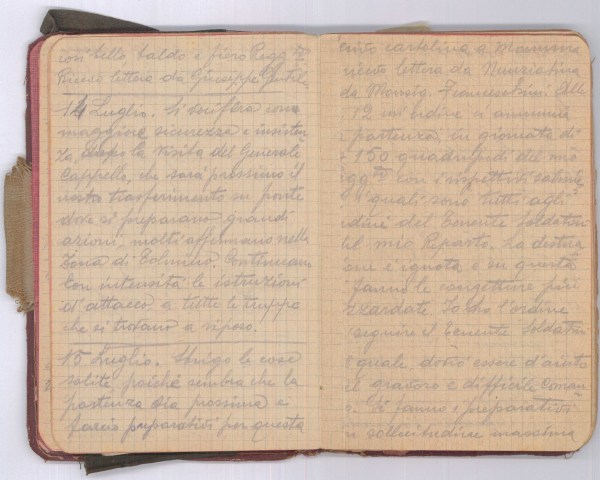 così bello baldo e fiero Regg.to
Ricevo lettera da Giuseppe
14 Luglio. Si vocifera con
maggiore sicurezza e insisten
za dopo la visita del Generale
Cappello, che sarà prossimo il
nostro trasferimento su fronte
dove si preparano grandi
azioni, molti affermano nella
Zona di Tolmino. Continuano
con intensità le istruzioni
d'attacco, a tutte le truppe
che si trovano a riposo.
15 Luglio. Sbrigo le cose
solite, poichè sembra che la
partenza sia prossima e
faccio preparativi per questa
cartolina a Mamma
ricevo lettera da Nunziatina
da Monsig. Franceschini. Alle
12 un ordine si annunzia
partenza in giornata di
150 quadrupedi del mio
con i rispettivi
quali sono tutti agli
ordini del Tenente
del mio Reparto. La destina
è ignota e su questa
fanno le congetture più
azzardate. Io ho l'ordine
seguire il Tenente
quale dovrò essere d'aiuto
gravoso e difficile
Si fanno i preparativi
sollecitudine massima